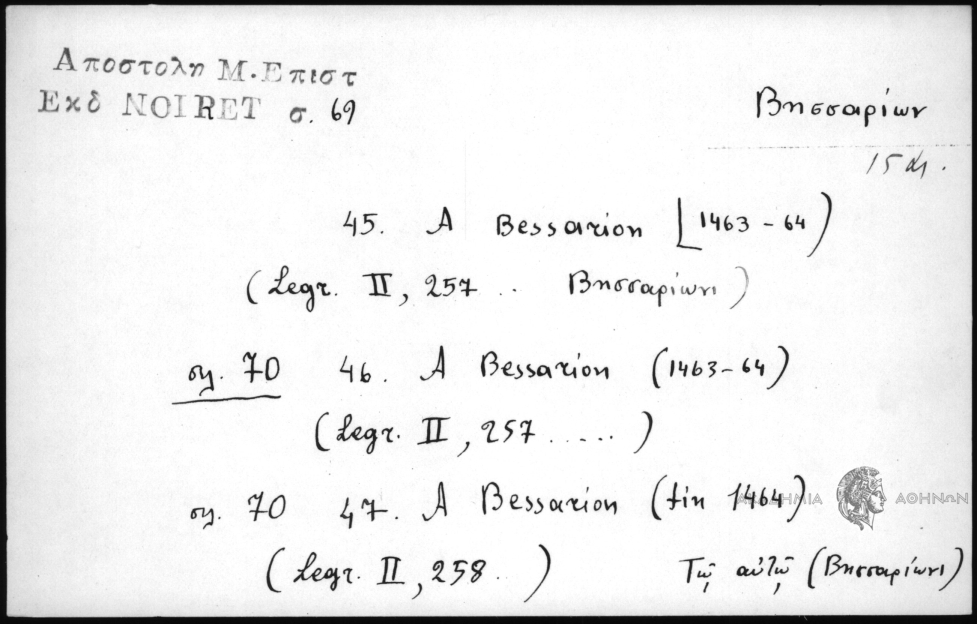 Αποστολη Μ. Επιστ
Εκδ NOIRET σ. 69
Βησσαρίων
15
45. A Bessarion [1463-64)
(Legr. II, 257 .. Βησσαρίωνι)
σελ. 70 46. A Bessarion (1463-64)
(Legr. II, 257 .....)
σελ. 70 47. A Bessarion (fin 1464)
(Legr. II, 258 .) Τῷ αὐτῷ (Βησσαρίωνι)
ΑΚΑΔΗΜΙΑ ΑΘΗΝΩΝ